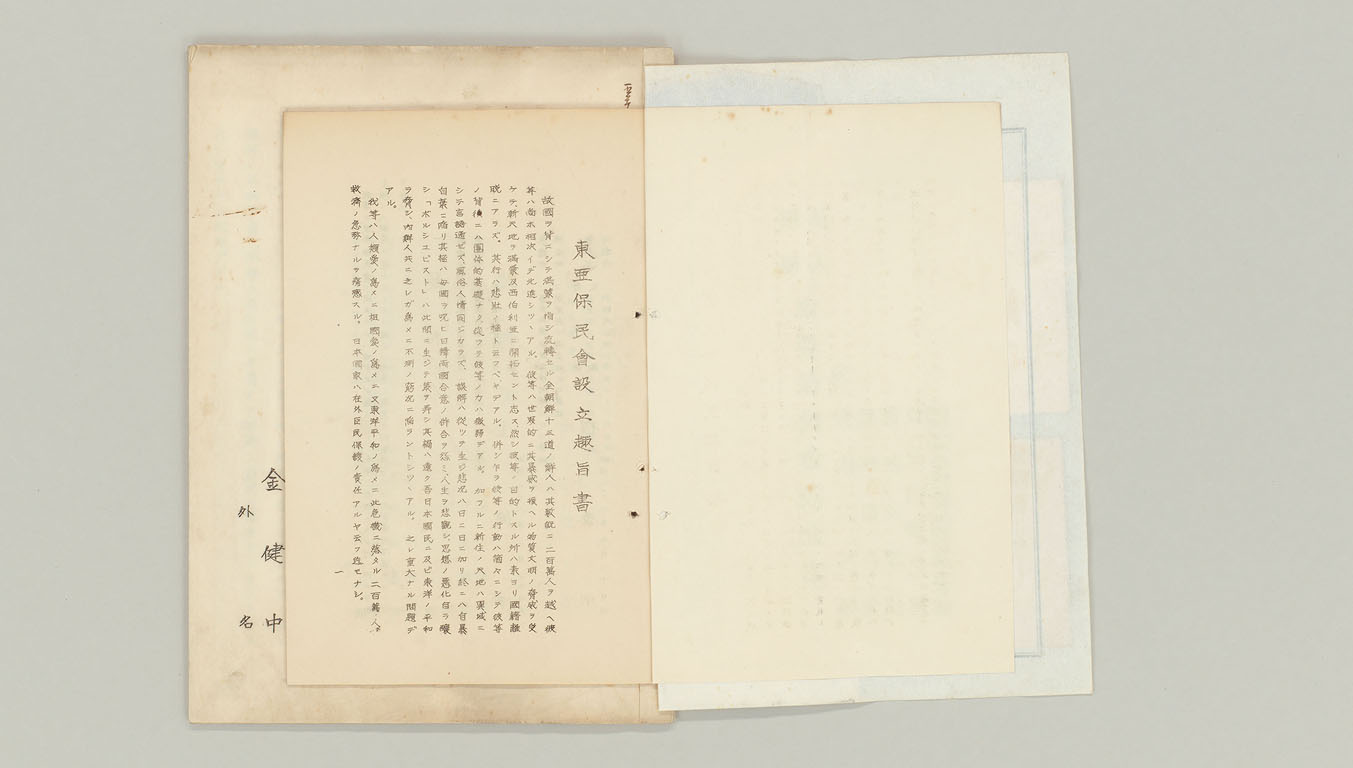 東亜保民會設立趣旨書
故國ヲ背ニシテ満蒙ヲ指シ流轉セル全朝鮮十三道ノ鮮人ハ其數既ニ二百萬人ヲ越ヘ彼
等ハ尚ホ相次イデ北進シツヽアル。彼等ハ世界的ニ其暴威ヲ振ヘル物質文明ノ脅威ヲ受
ケテ、新天地ヲ満蒙及西伯利亜ニ開拓セント志ス然シ彼等ノ目的トスル所ハ素ヨリ國籍離
脱ニアラズ。其行ハ悲壯ノ極ト云フベキデアル。併シ乍ラ彼等ノ行動ハ箇々ニシテ彼等
ノ背後ニハ團体的基礎ナク從ツテ彼等ノ力ハ微弱デアル。加フルニ新住ノ天地ハ異域ニ
シテ言語通ゼズ、風俗人情同ジカラズ、誤解ハ從ツテ生ジ悲況ハ日ニ日ニ加リ終ニハ自暴
自棄ニ陥リ其極ハ母國ヲ呪ヒ日韓両國合意ノ併合ヲ怨ミ、人生ヲ悲觀シ、思想ノ悪化自ラ釀
シ「ボルシエビスト」ハ此間ニ生ジテ策ヲ弄シ其禍ハ遠ク吾日本國民ニ及ビ東洋ノ平和
ヲ脅シ、内鮮人共ニ之レガ為メニ不測ノ窮況ニ陥ラントシツヽアル。之レ重大ナル問題デ
アル。
我等ハ人類愛ノ為メニ祖國愛ノ為メニ又東洋平和ノ為メニ此危機ニ落タル二百萬人ヲ
救濟ノ急務ナルヲ痛感スル。日本國家ハ在外臣民保護ノ責任アルヤ云フ迄モナシ。
一
金健中
外 名